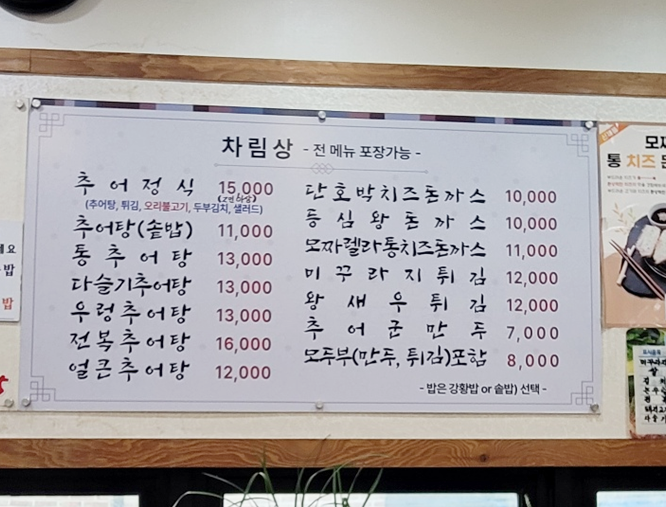 차림상 - 전 메뉴 포장가능 -
추어정식 15,000
(2인이상)
(추어탕, 튀김, 오리불고기, 두부김치, 샐러드)
추어탕(솥밥) 11,000
통추어탕 13,000
다슬기추어탕 13,000
우렁추어탕 13,000
전복추어탕 16,000
얼큰추어탕 12,000
단호박치즈돈까스 10,000
등심왕돈까스 10,000
모짜렐라통치즈돈까스 11,000
미꾸라지튀김 12,000
왕새우튀김 12,000
추어군만두 7,000
모두부(만두, 튀김)포함 8,000
- 밥은 강황밥 or 솥밥) 선택 -
모짜
통 치즈